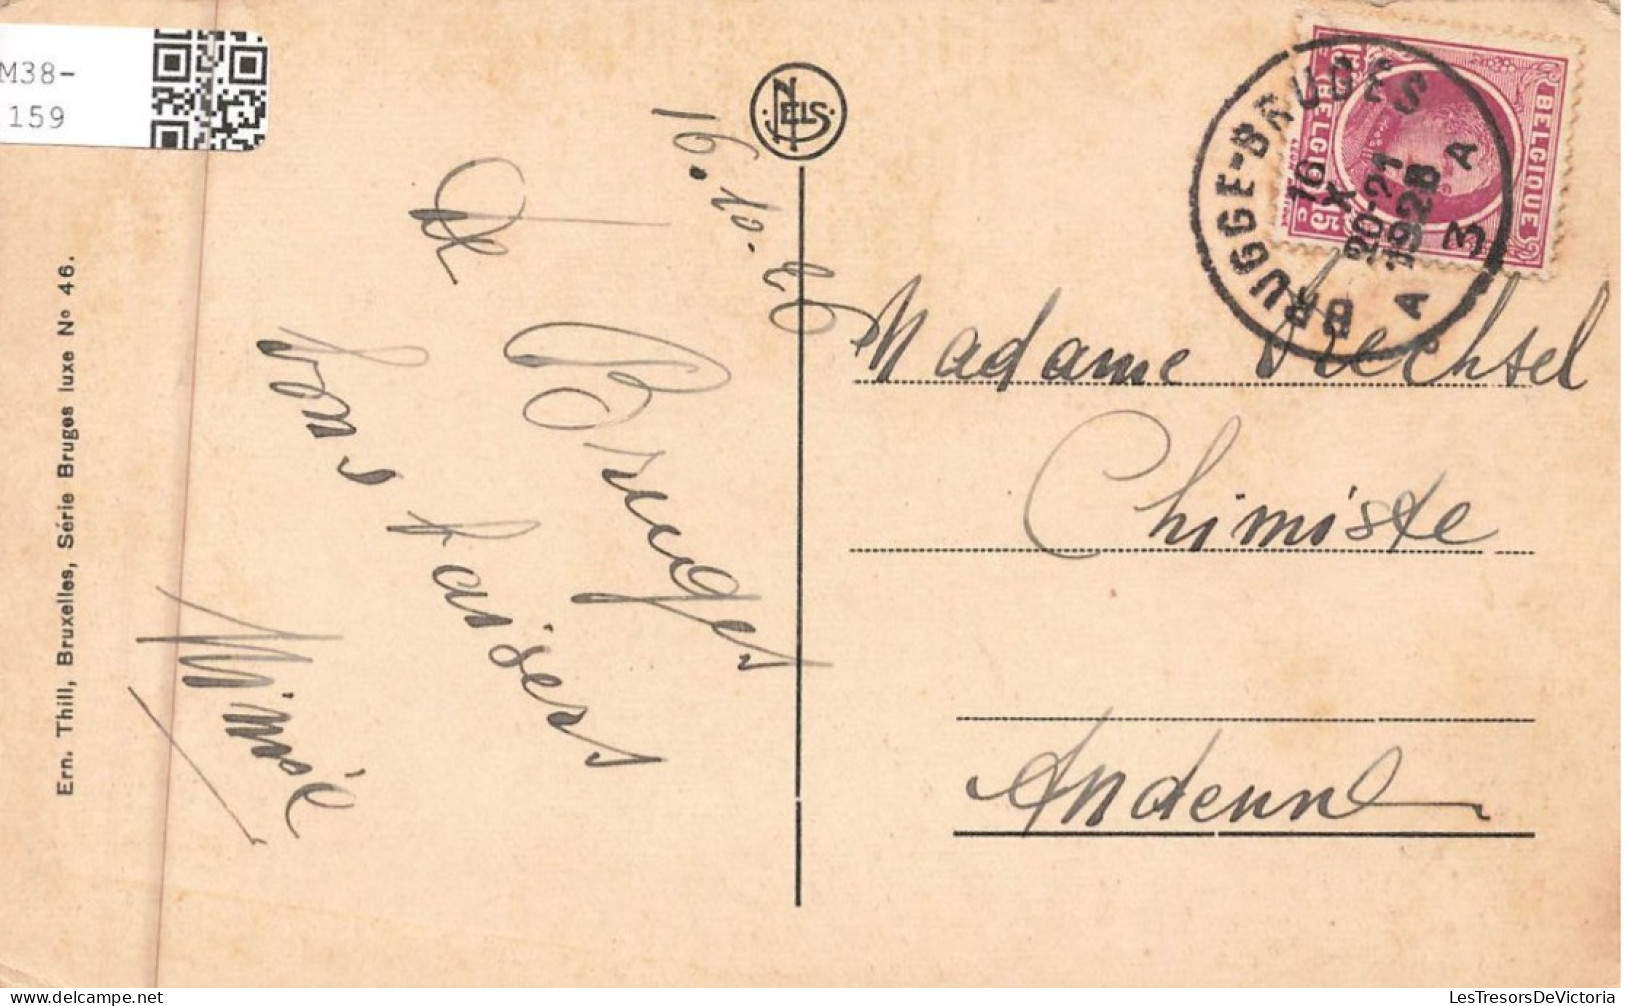 M38-
159
Ern. Thill, Bruxelles, Série Bruges luxe Nº 46.
NELS
16.10.26
De
Bruges
bons baisers
Mimie
BRUGGE-BRUGES
16
X
20-21
1928
A 3 A
BELGIQUE
BELGIQUE
15 c
Madame Drechsel
Chimiste
Andenne
LesTresorsDeVictoria
www.delcampe.net